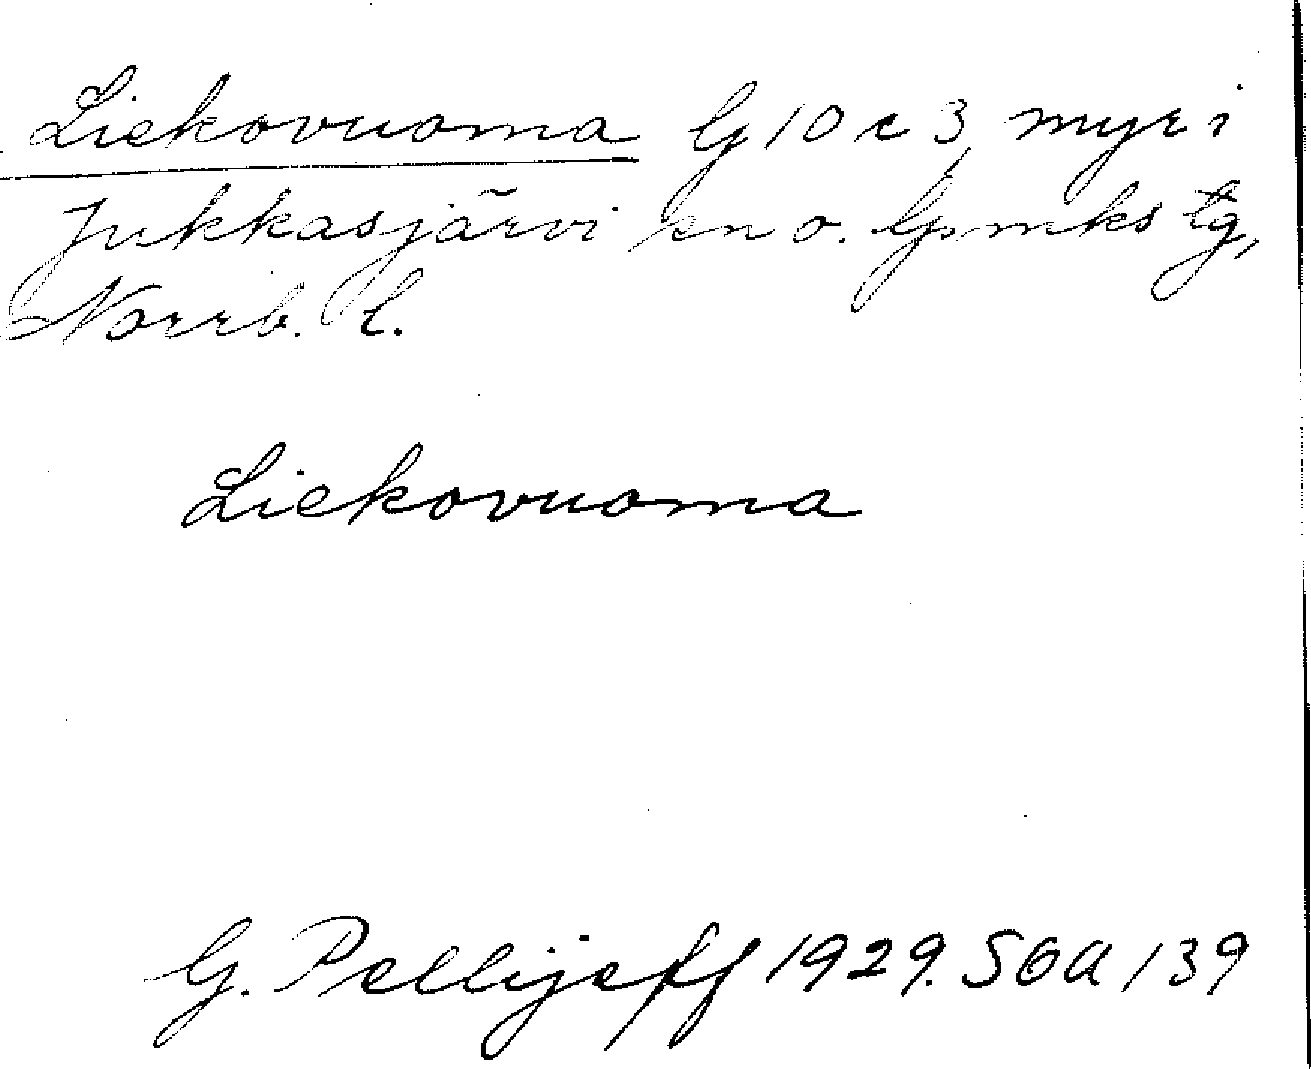 Liekovuoma G 10 c 3 myr i
Jukkasjärvi sn o. Gpmks tg,
Norrb. l.
Liekovuoma
G. Pellijeff 1929. SOA 139